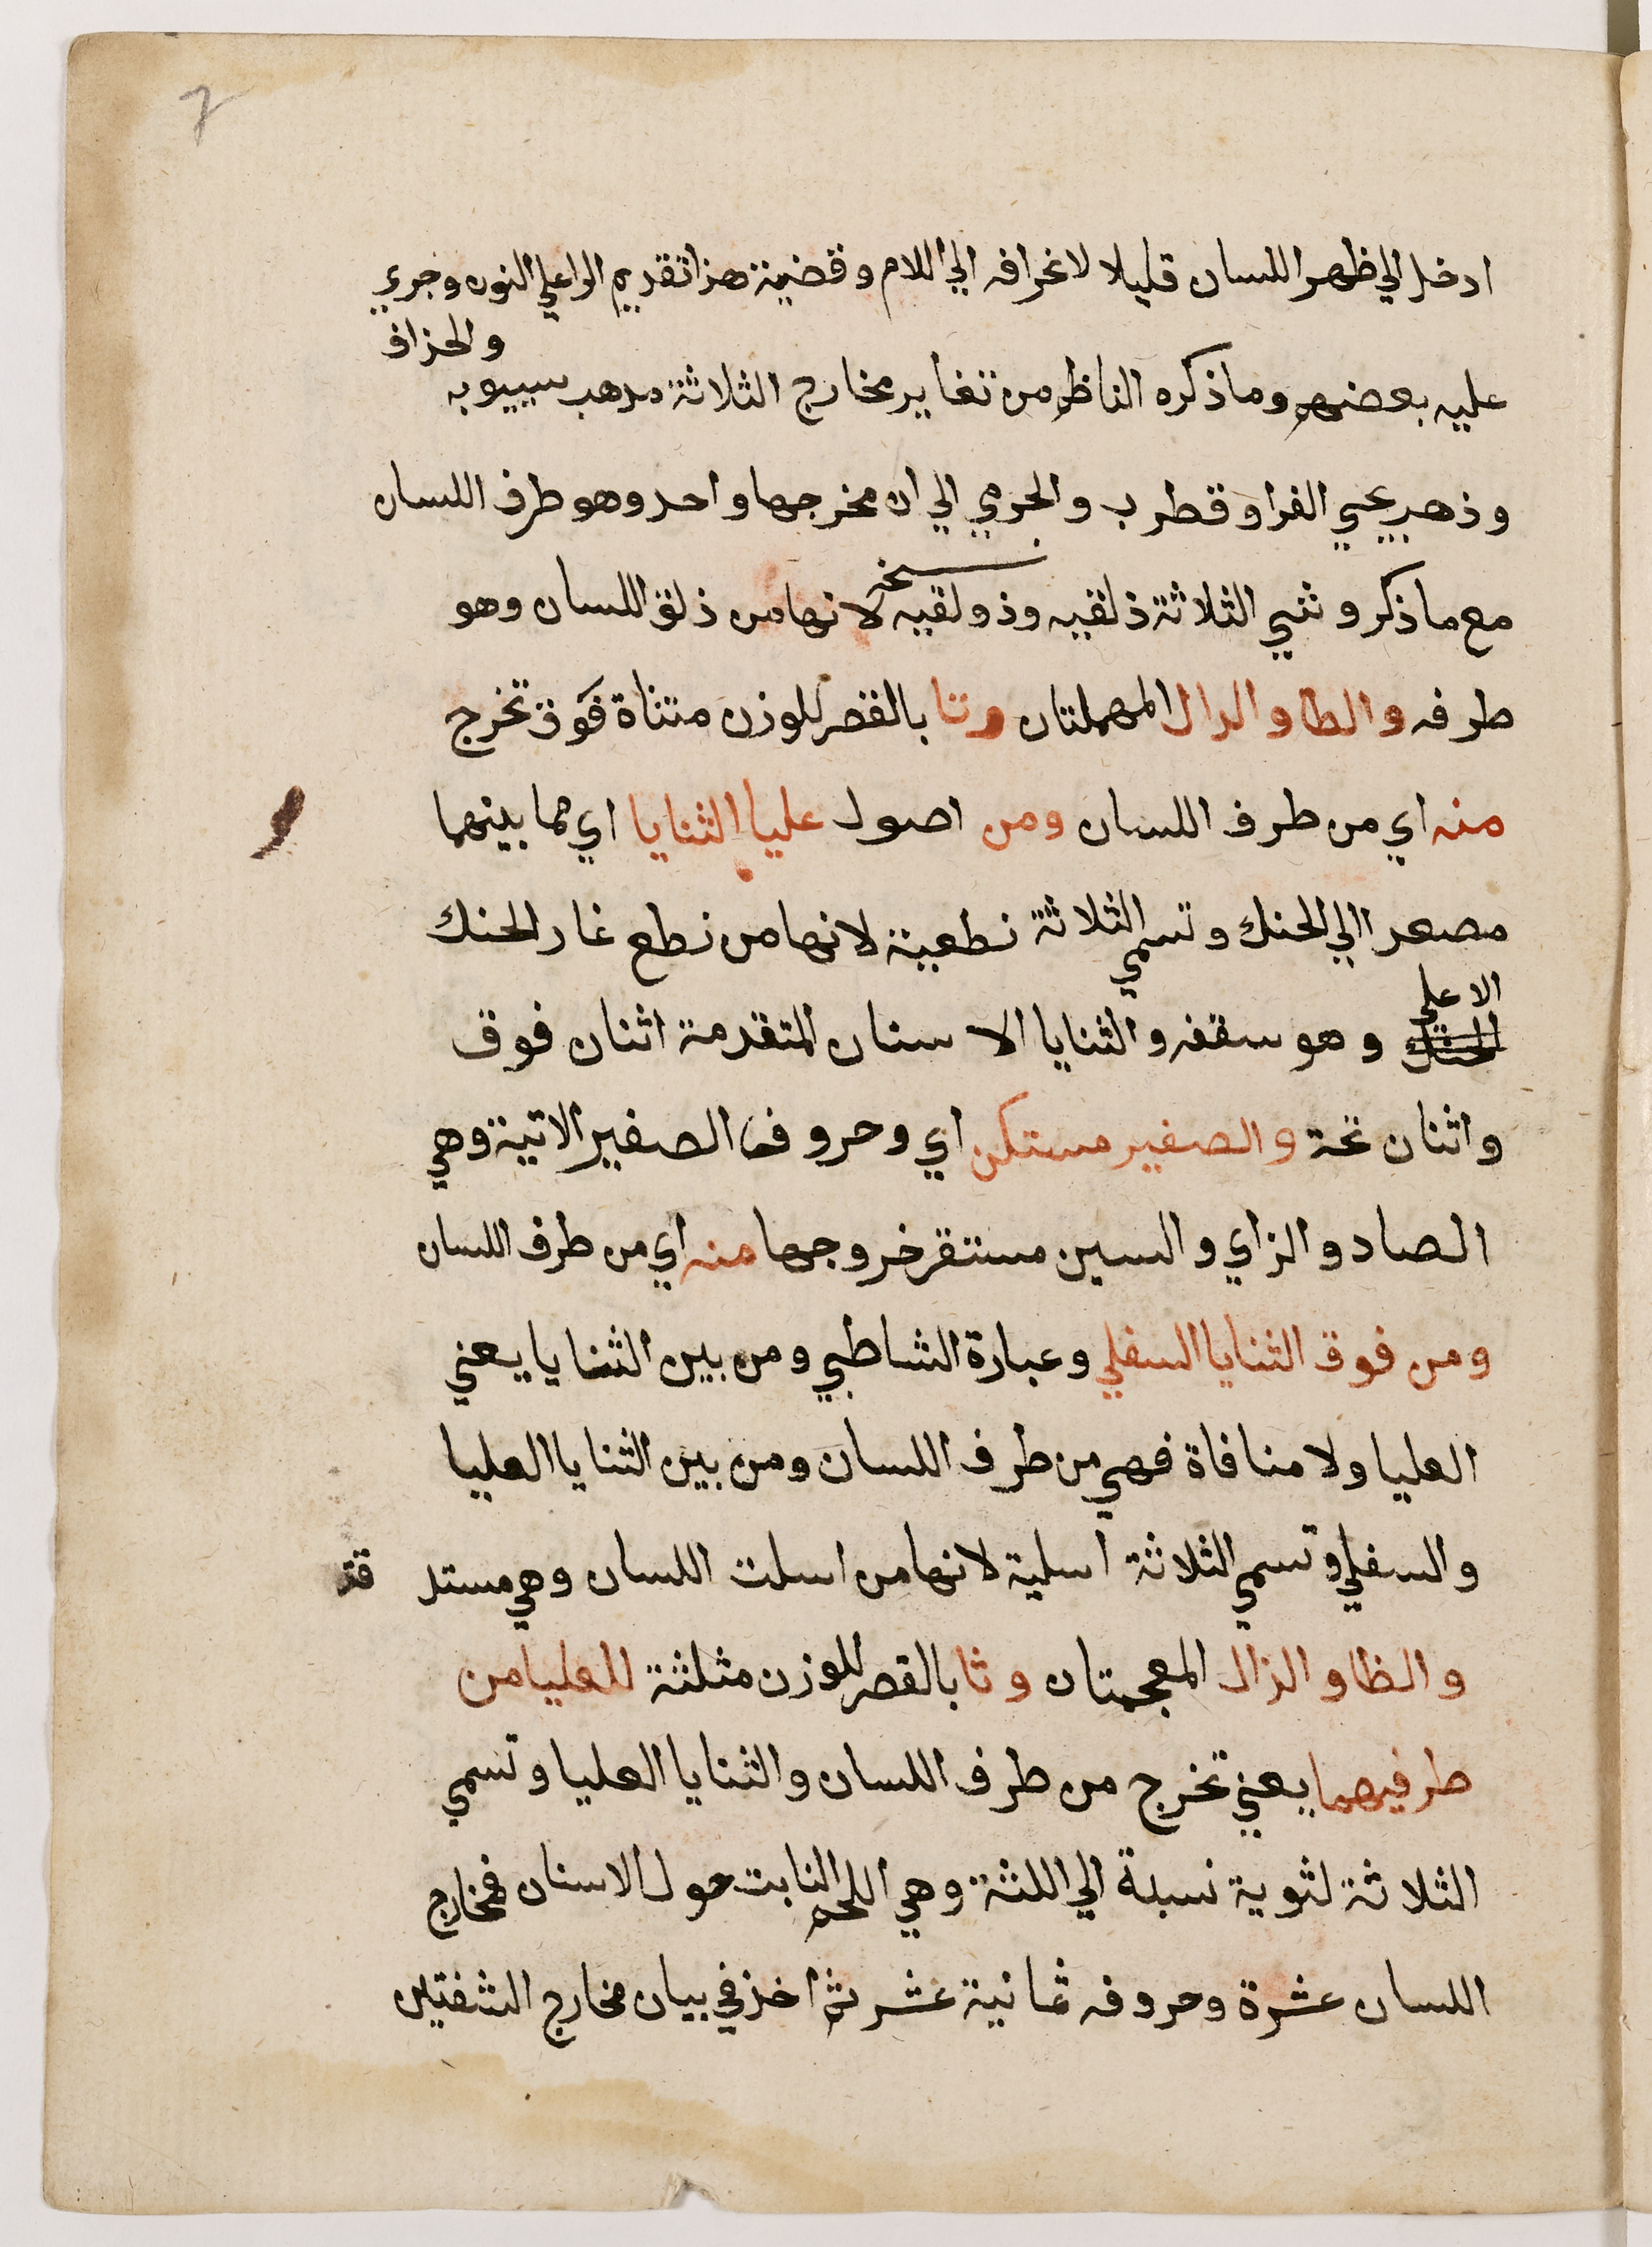 7
ادخل الي ظهر اللسان قليلا لانحرافه الي اللام وقضية هذا تقديم الرا علي النون وجري
عليه بعضهم وما ذكره الناظم من تغاير مخارج الثلاثة مذهب سيبويه
والحذاق
وذهب يحيي الفرا وقطرب والجرمي الي ان مخرجها واحد وهو طرف اللسان
نسخه
مع ما ذكر وتسمي الثلاثة ذلقيه وذولقيه لانها من ذلق اللسان وهو
طرفه والطا والدال المهملتان وتا بالقصر للوزن مثناة فوق تخرج
منه اي من طرف اللسان ومن اصول عليا الثنايا اي مما بينهما
مصعدا الي الحنك وتسمي الثلاثة نطعية لانها من نطع غار الحنك
الاعلي
الحنك وهو سقفه والثنايا الاسنان المتقدمة اثنان فوق
واثنان تحة والصفير مستكن اي وحروف الصفير الاتية وهي
الصاد والزاي والسين مستقر خروجها منه اي من طرف اللسان
ومن فوق الثنايا السفلي وعبارة الشاطبي ومن بين الثنايا يعني
العليا ولا منافاة فهي من طرف اللسان ومن بين الثنايا العليا
والسفلي وتسمي الثلاثة اسلية لانها من اسلت اللسان وهي مستد قه
والظا والذال المعجمتان وثا بالقصر للوزن مثلثة للعليا من
طرفيهما يعني تخرج من طرف اللسان والثنايا العليا وتسمي
الثلاثة لثوية نسبة الي اللثة وهي اللحم النابت حول الاسنان فمخارج
اللسان عشرة وحروفه ثمانية عشر ثم اخذ في بيان مخارج الشفتين